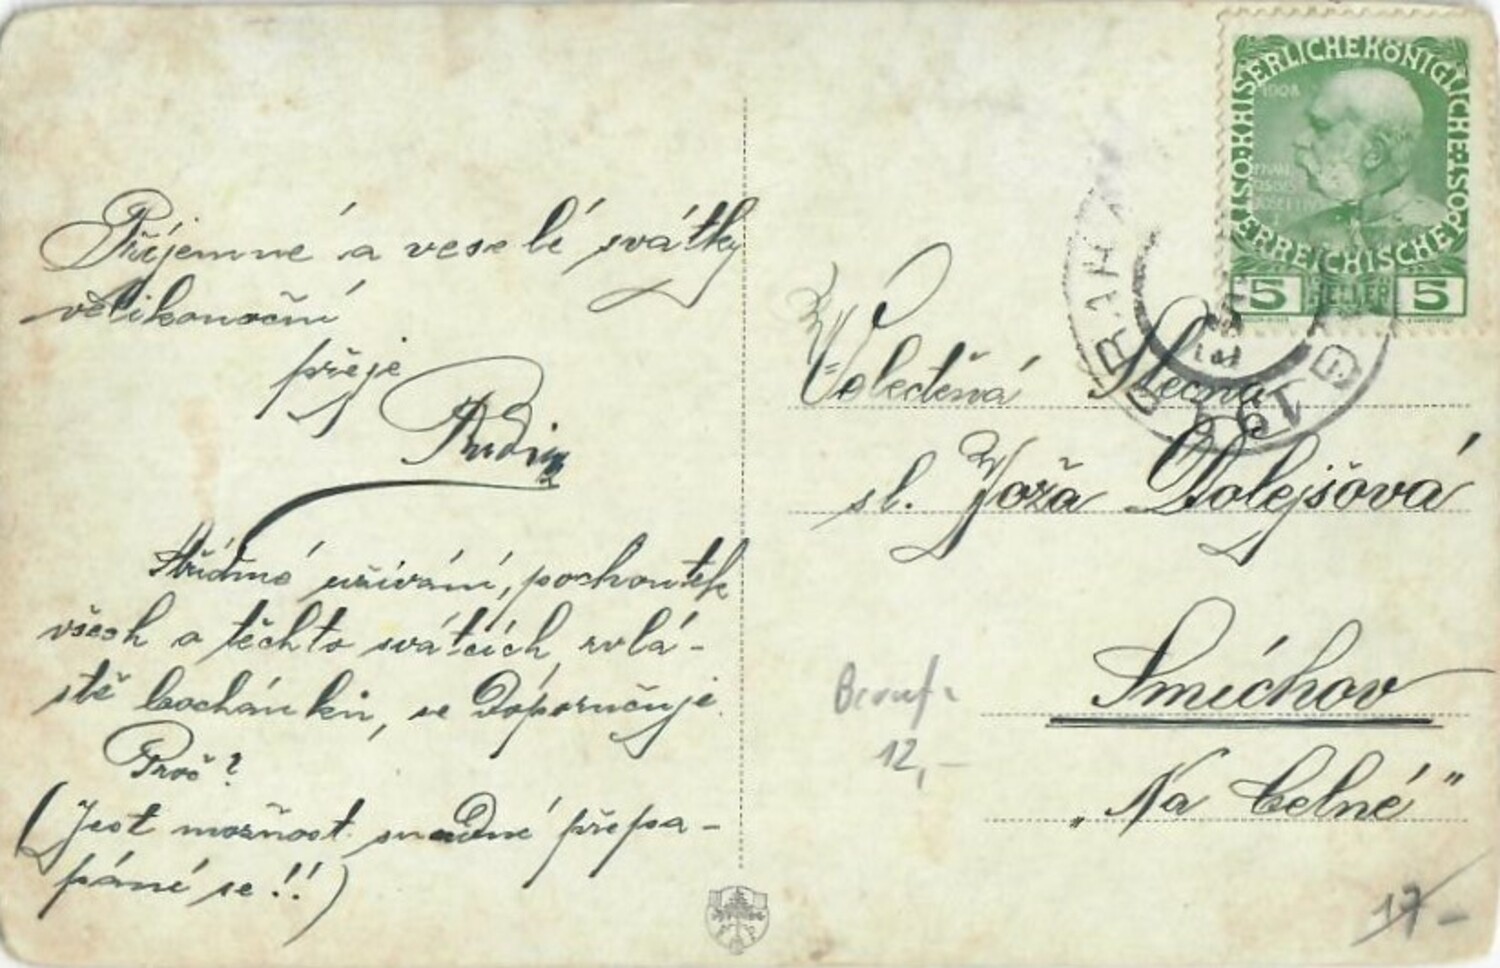 Příjemné a veselé svátky
velikonoční
přeje
Střídmé užívání, pochoutek
všech o těchto svátcích, zvlá-
stě bochánků, se Doporučuje.
Proč?
(Jest možnost snadné přepa-
pání se!!)
KAISERLICHE KÖNIGLICHE
ÖSTERREICHISCHE POST
1908
5 HELLER 5
PRAHA
Velectěná Slečna
sl. Joža Dolejšová
Smíchov
„Na Celné"
12,-
17-